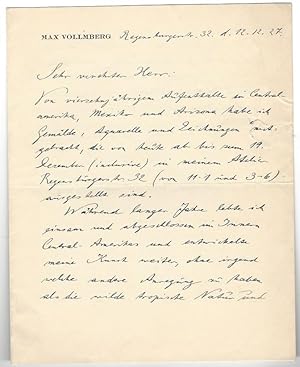 MAX VOLLMBERG Regensburgerstr. 32. d. 12.12.27.
Sehr verehrter Herr:
Von vierzehnjährigem Aufenthalte in Central-
amerika, Mexiko und Arizona habe ich
Gemälde, Aquarelle und Zeichnungen mit-
gebracht, die von heute ab bis zum 19.
Dezember (inclusive) in meinem Atelier
Regensburgerstr. 32 (von 11-1 und 3-6)
ausgestellt sind.
Während langer Jahre lebte ich
einsam und abgeschlossen im Innern
Central-Amerikas und entwickelte
meine Kunst weiter, ohne irgend
welche andere Anregung zu haben
als die wilde tropische Natur und